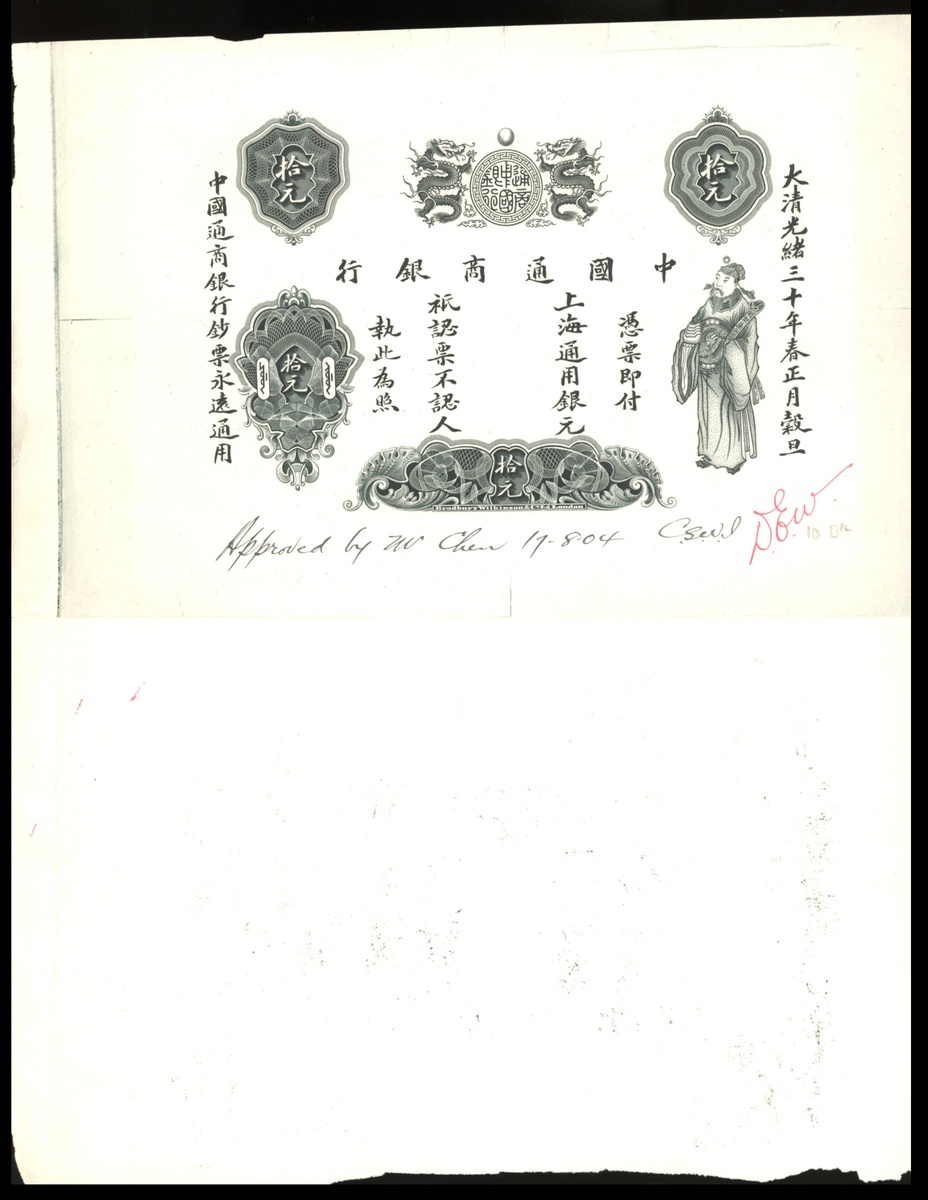 拾元
拾元
通商中國銀行
中國通商銀行
大清光緒三十年春正月穀旦
憑票即付
上海通用銀元
祇認票不認人
執此為照
中國通商銀行鈔票永遠通用
拾元
拾元
Bradbury Wilkinson & Co Ld London
Approved by Mr Chen 17-8-04
D.E.W.